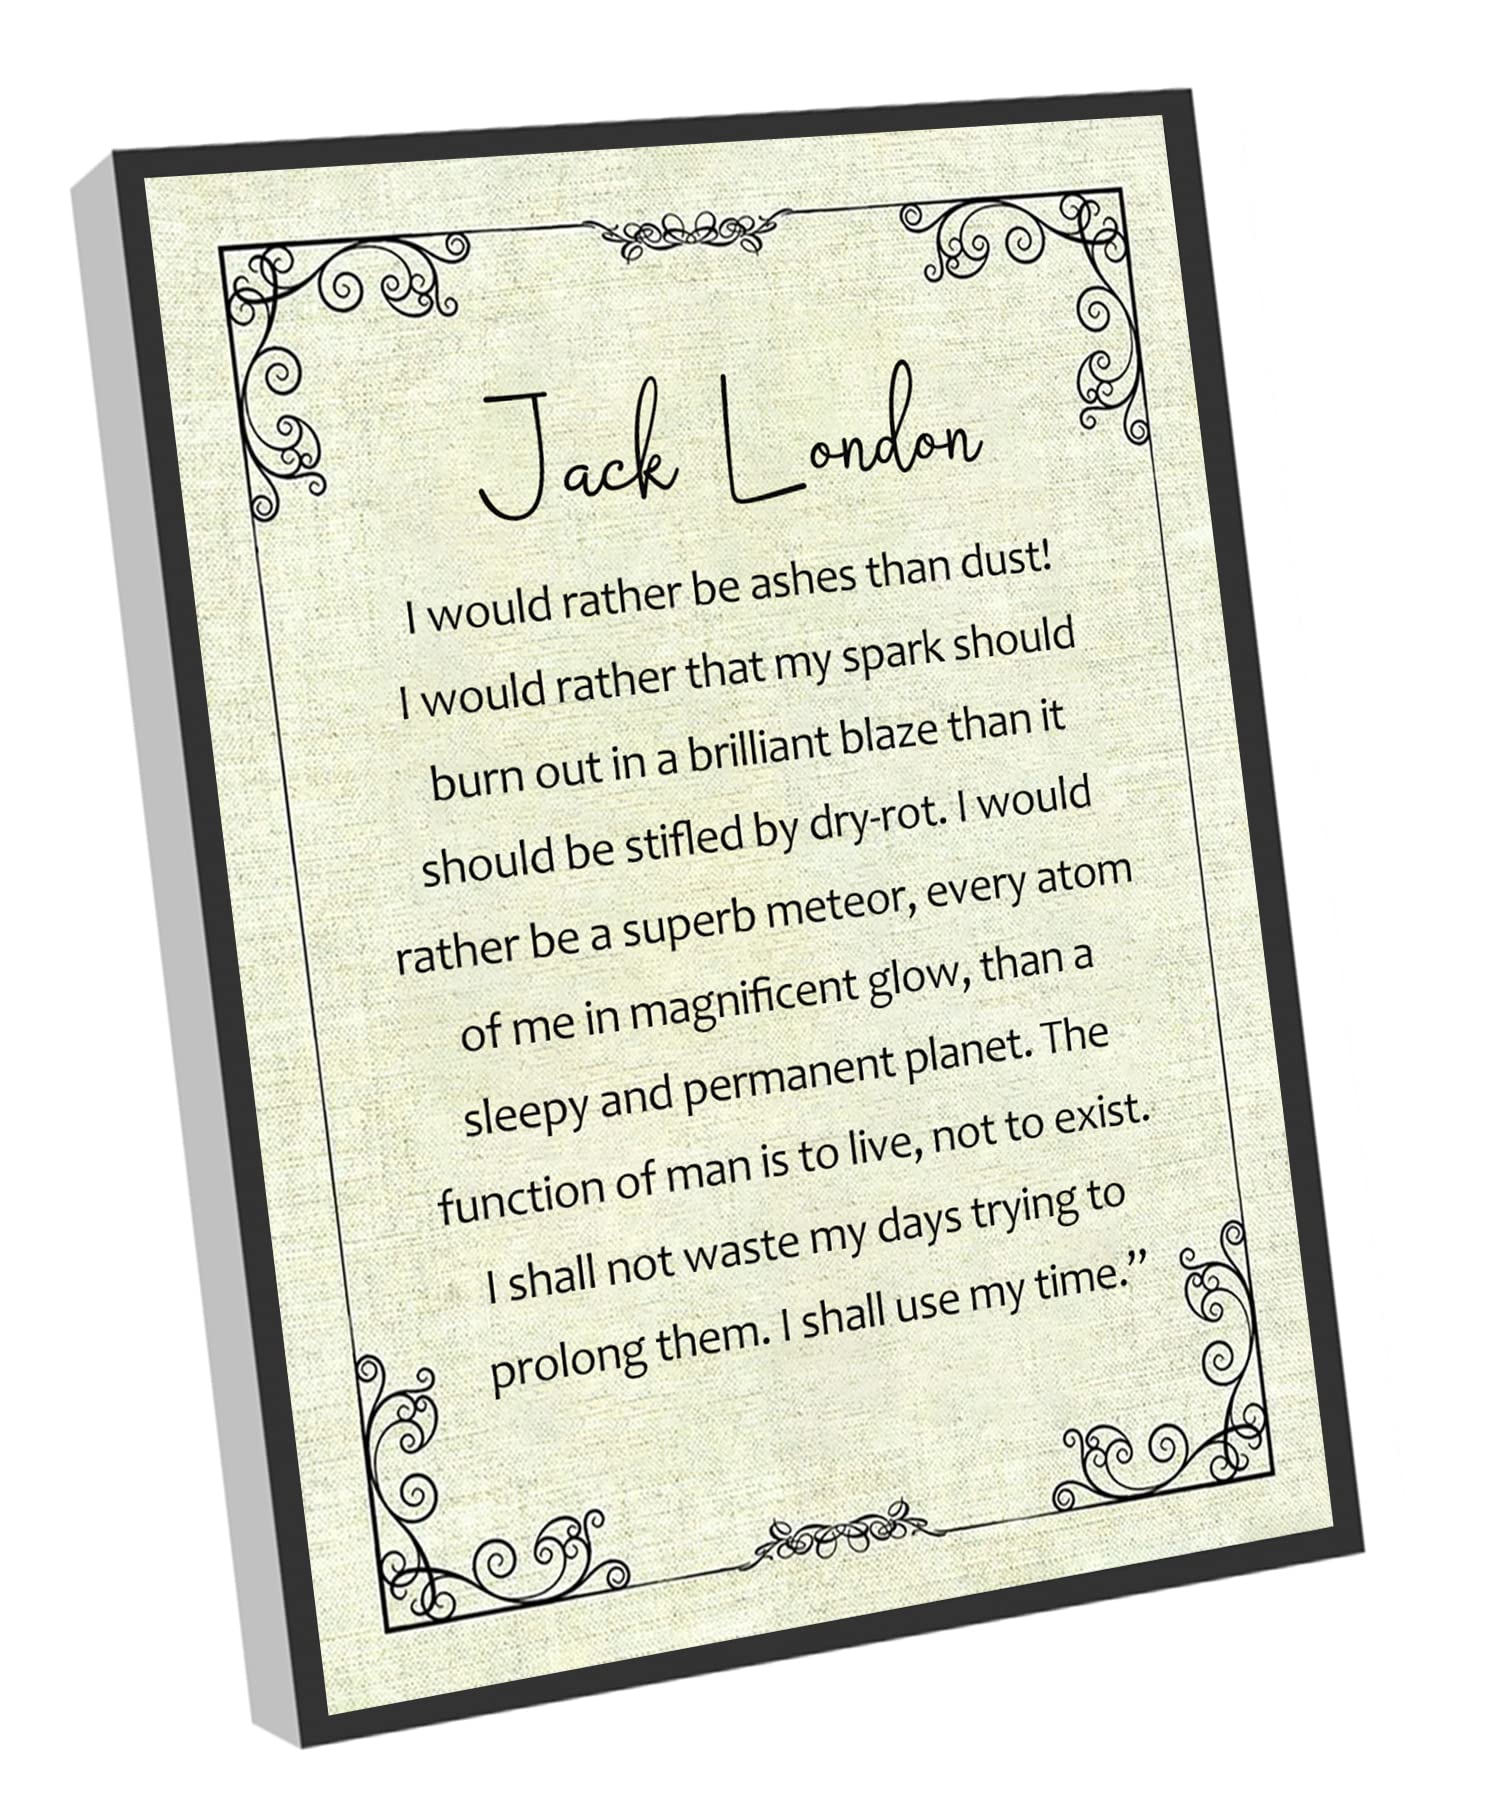 Jack London
I would rather be ashes than dust!
I would rather that my spark should
burn out in a brilliant blaze than it
should be stifled by dry-rot. I would
rather be a superb meteor, every atom
of me in magnificent glow, than a
sleepy and permanent planet. The
function of man is to live, not to exist.
I shall not waste my days trying to
prolong them. I shall use my time.”